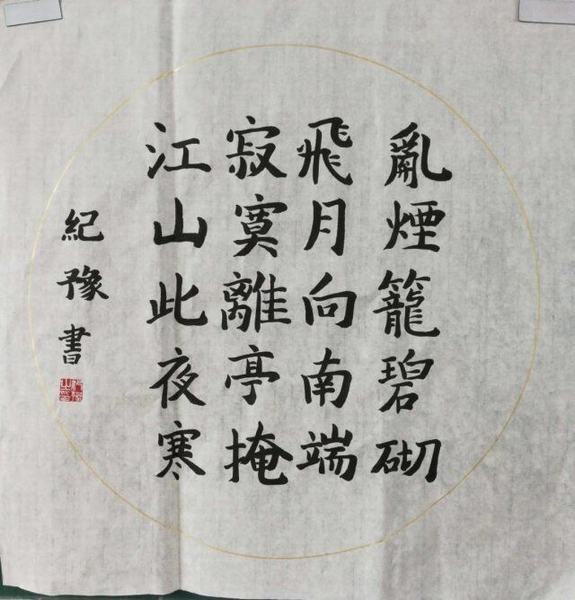 亂煙籠碧砌
飛月向南端
寂寞離亭掩
江山此夜寒
紀豫書